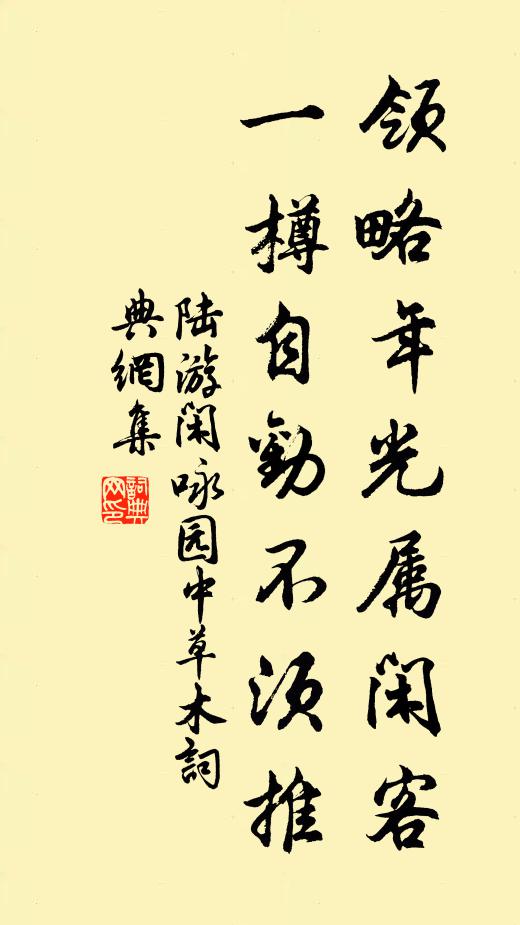 领略年光属闲客
一樽自勸不须推
陆游闲咏园中草木詞
典網集
詞典
网印